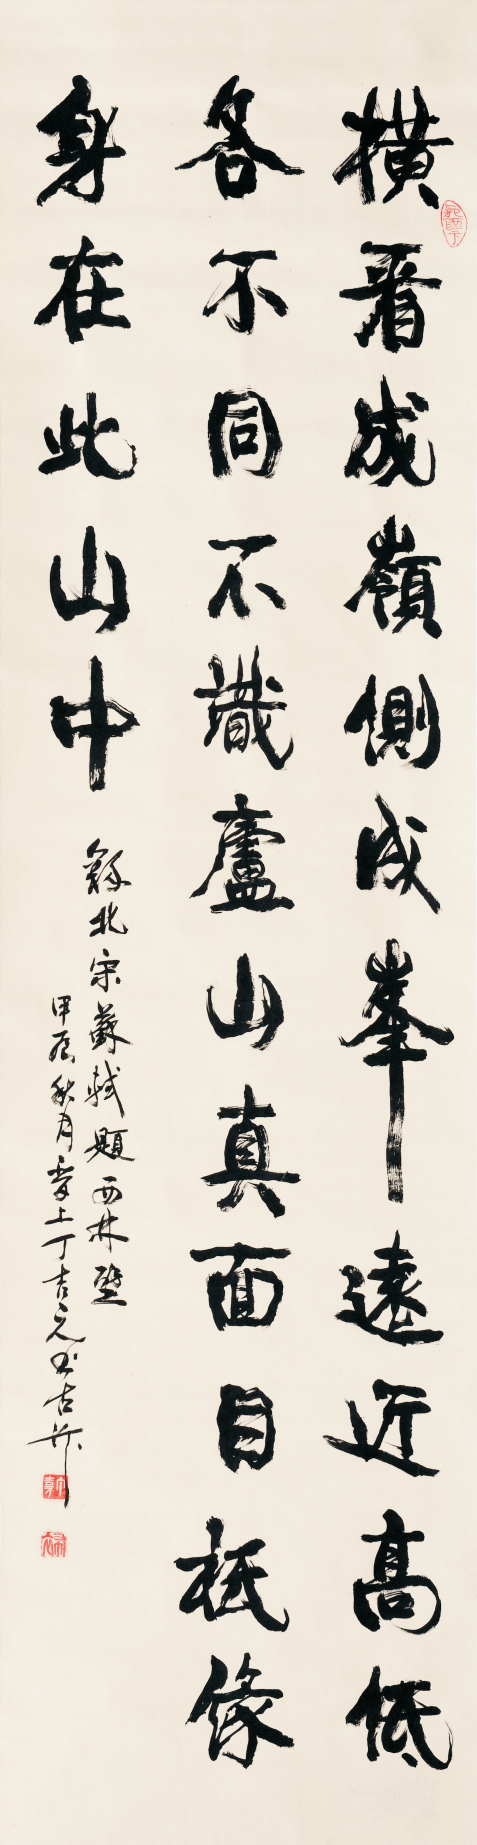 橫看成嶺側成峯遠近高低
各不同不識廬山真面目祇像
身在此山中
錄北宋蘇軾題西林壁
甲辰秋月上丁吉元书古汴